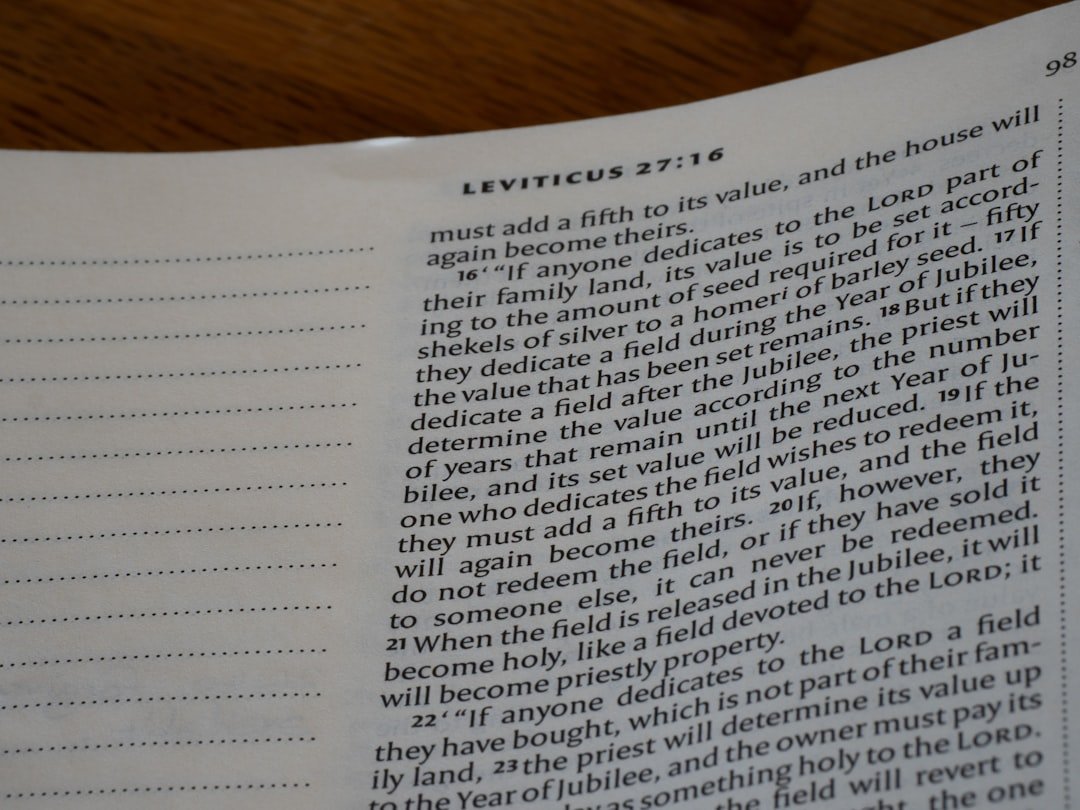 98
LEVITICUS 27:16
must add a fifth to its value, and the house will
again become theirs.
16 ‘ “If anyone dedicates to the LORD part of
their family land, its value is to be set accord-
ing to the amount of seed required for it – fifty
shekels of silver to a homeri of barley seed. 17 If
they dedicate a field during the Year of Jubilee,
the value that has been set remains. 18 But if they
dedicate a field after the Jubilee, the priest will
determine the value according to the number
of years that remain until the next Year of Ju-
bilee, and its set value will be reduced. 19 If the
one who dedicates the field wishes to redeem it,
they must add a fifth to its value, and the field
will again become theirs. 20 If, however, they
do not redeem the field, or if they have sold it
to someone else, it can never be redeemed.
21 When the field is released in the Jubilee, it will
become holy, like a field devoted to the LORD; it
will become priestly property.
22 ‘ “If anyone dedicates to the LORD a field
they have bought, which is not part of their fam-
ily land, 23 the priest will determine its value up
to the Year of Jubilee, and the owner must pay its
as something holy to the LORD.
the field will revert to
the one